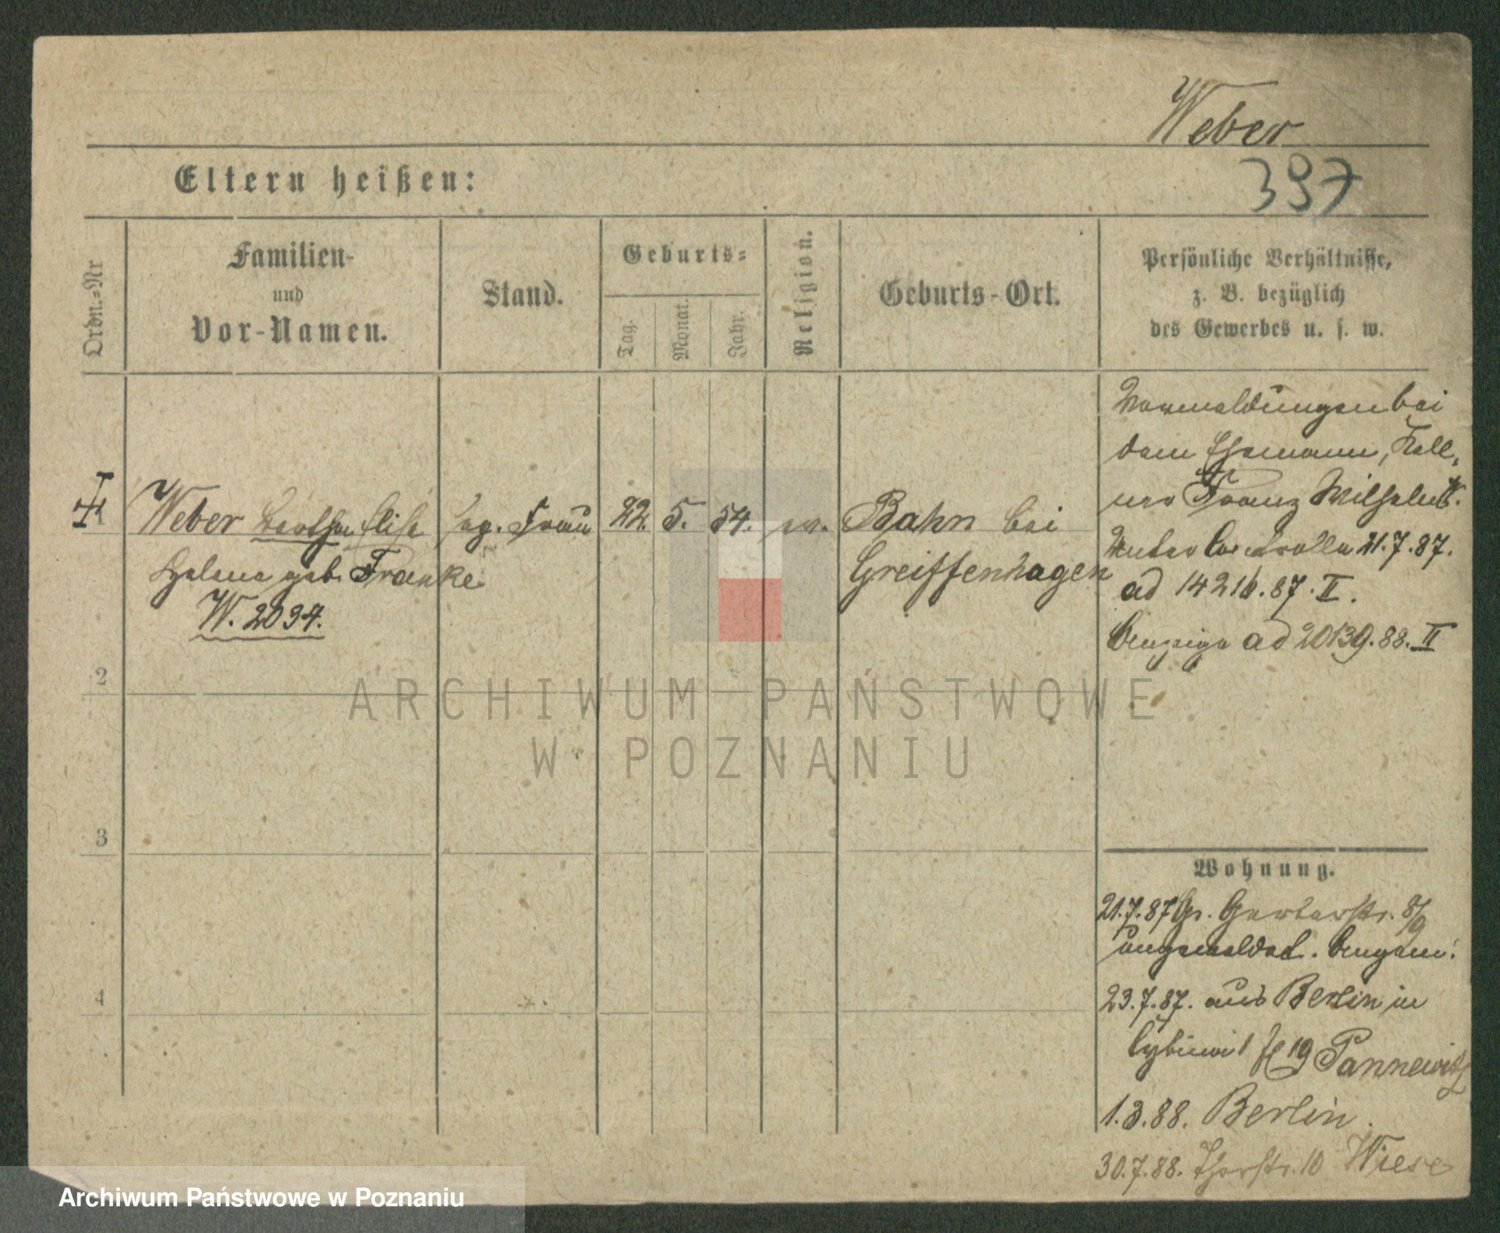 Weber
397
Eltern heißen:
Ordn.=Nr
Familien-
und
Vor-Namen.
Stand.
Geburts=
Tag.
Monat.
Jahr.
Religion.
Geburts-Ort.
Persönliche Verhältnisse,
z. B. bezüglich
des Gewerbes u. s. w.
Weber Bertha Elise
Helene geb. Franke
W. 2034.
sep. Frau
22. 5. 54. ev.
Bahn bei
Greiffenhagen
Vermeldungen bei
dem Ehemann, Kell-
ner Franz Wilhelm W.
Unter Controlle 21.7.87.
ad 14216.87.II.
Anzeige ad 20139.88.II
2
3
4
Wohnung.
21.7.87 Gr. Gerberstr. 8/9
angemeldet. angem:
23.7.87. aus Berlin in
19 Pannewitz
1.3.88. Berlin.
30.7.88. Thorstr. 10 Wiese
ARCHIWUM PAŃSTWOWE
W POZNANIU
Archiwum Państwowe w Poznaniu